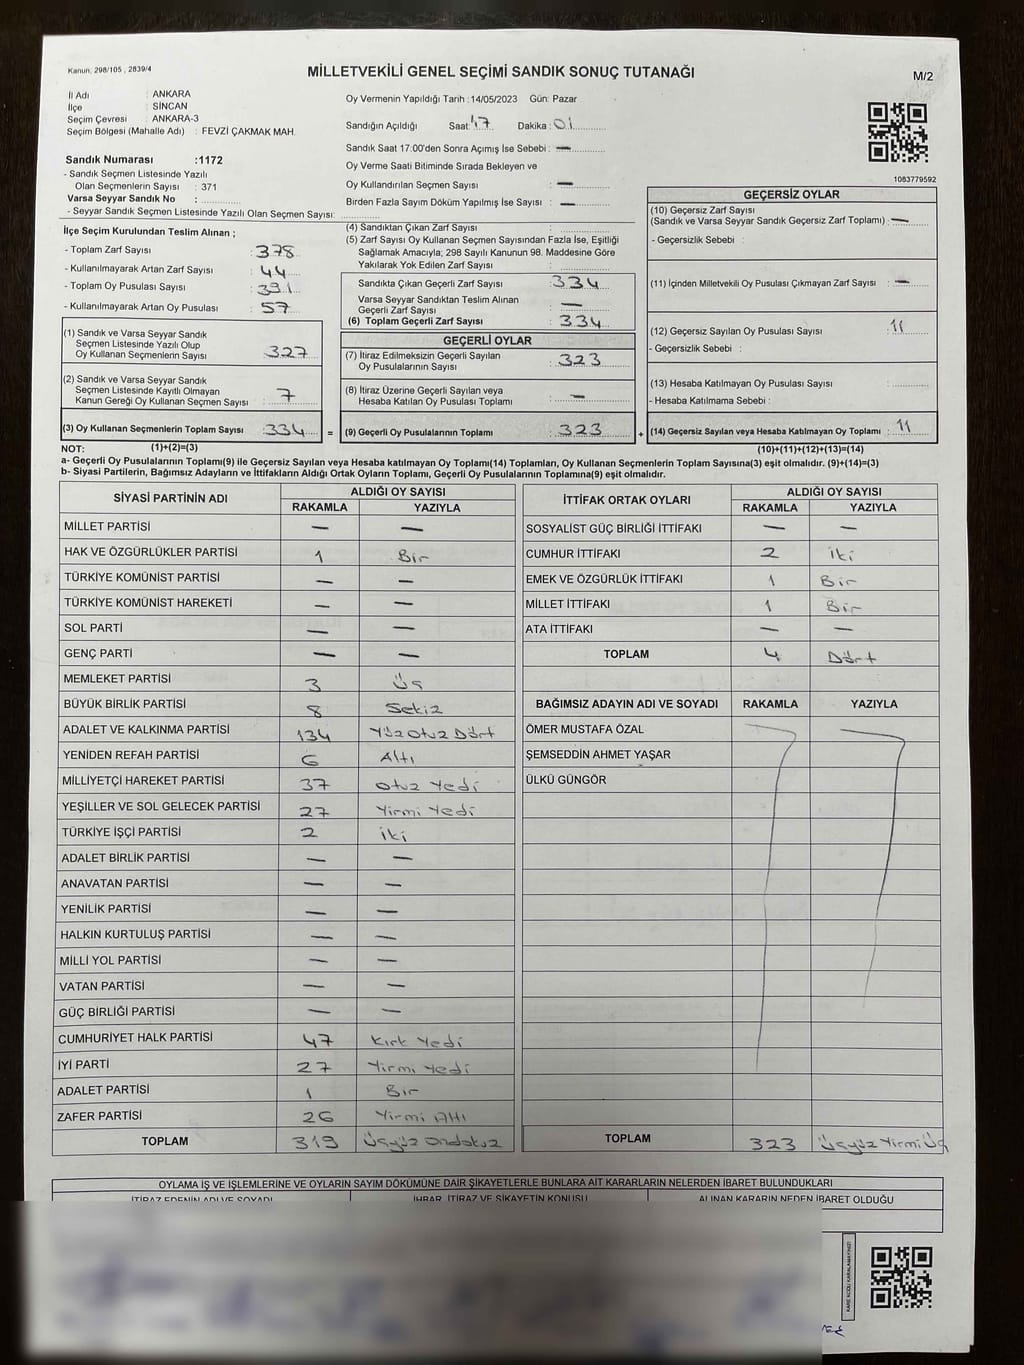 Kanun, 298/105 , 2839/4
MİLLETVEKİLİ GENEL SEÇİMİ SANDIK SONUÇ TUTANAĞI
M/2
İl Adı : ANKARA
İlçe : SİNCAN
Seçim Çevresi : ANKARA-3
Seçim Bölgesi (Mahalle Adı) : FEVZİ ÇAKMAK MAH.
Sandık Numarası :1172
- Sandık Seçmen Listesinde Yazılı
Olan Seçmenlerin Sayısı : 371
Varsa Seyyar Sandık No :
- Seyyar Sandık Seçmen Listesinde Yazılı Olan Seçmen Sayısı:
Oy Vermenin Yapıldığı Tarih :14/05/2023 Gün: Pazar
Sandığın Açıldığı Saat: 17 Dakika : 01
Sandık Saat 17:00'den Sonra Açımış İse Sebebi : —
Oy Verme Saati Bitiminde Sırada Bekleyen ve
Oy Kullandırılan Seçmen Sayısı : —
Birden Fazla Sayım Döküm Yapılmış İse Sayısı : —
1083779592
İlçe Seçim Kurulundan Teslim Alınan ;
- Toplam Zarf Sayısı : 378
- Kullanılmayarak Artan Zarf Sayısı : 44
- Toplam Oy Pusulası Sayısı : 391
- Kullanılmayarak Artan Oy Pusulası : 57
(1) Sandık ve Varsa Seyyar Sandık
Seçmen Listesinde Yazılı Olup
Oy Kullanan Seçmenlerin Sayısı : 327
(2) Sandık ve Varsa Seyyar Sandık
Seçmen Listesinde Kayıtlı Olmayan
Kanun Gereği Oy Kullanan Seçmen Sayısı : 7
(3) Oy Kullanan Seçmenlerin Toplam Sayısı : 334 =
(4) Sandıktan Çıkan Zarf Sayısı :
(5) Zarf Sayısı Oy Kullanan Seçmen Sayısından Fazla İse, Eşitliği
Sağlamak Amacıyla; 298 Sayılı Kanunun 98. Maddesine Göre
Yakılarak Yok Edilen Zarf Sayısı :
Sandıkta Çıkan Geçerli Zarf Sayısı : 334
Varsa Seyyar Sandıktan Teslim Alınan
Geçerli Zarf Sayısı : —
(6) Toplam Geçerli Zarf Sayısı : 334
GEÇERLİ OYLAR
(7) İtiraz Edilmeksizin Geçerli Sayılan
Oy Pusulalarının Sayısı : 323
(8) İtiraz Üzerine Geçerli Sayılan veya
Hesaba Katılan Oy Pusulası Toplamı : —
(9) Geçerli Oy Pusulalarının Toplamı : 323 +
GEÇERSİZ OYLAR
(10) Geçersiz Zarf Sayısı
(Sandık ve Varsa Seyyar Sandık Geçersiz Zarf Toplamı) : —
- Geçersizlik Sebebi :
(11) İçinden Milletvekili Oy Pusulası Çıkmayan Zarf Sayısı : —
(12) Geçersiz Sayılan Oy Pusulası Sayısı : 11
- Geçersizlik Sebebi :
(13) Hesaba Katılmayan Oy Pusulası Sayısı :
- Hesaba Katılmama Sebebi :
(14) Geçersiz Sayılan veya Hesaba Katılmayan Oy Toplamı : 11
NOT: (1)+(2)=(3) (10)+(11)+(12)+(13)=(14)
a- Geçerli Oy Pusulalarının Toplamı(9) ile Geçersiz Sayılan veya Hesaba katılmayan Oy Toplamı(14) Toplamları, Oy Kullanan Seçmenlerin Toplam Sayısına(3) eşit olmalıdır. (9)+(14)=(3)
b- Siyasi Partilerin, Bağımsız Adayların ve İttifakların Aldığı Ortak Oyların Toplamı, Geçerli Oy Pusulalarının Toplamına(9) eşit olmalıdır.
SİYASİ PARTİNİN ADI ALDIĞI OY SAYISI
RAKAMLA YAZIYLA
MİLLET PARTİSİ — —
HAK VE ÖZGÜRLÜKLER PARTİSİ 1 Bir
TÜRKİYE KOMÜNİST PARTİSİ — —
TÜRKİYE KOMÜNİST HAREKETİ — —
SOL PARTİ — —
GENÇ PARTİ — —
MEMLEKET PARTİSİ 3 Üç
BÜYÜK BİRLİK PARTİSİ 8 Sekiz
ADALET VE KALKINMA PARTİSİ 134 Yüz Otuz Dört
YENİDEN REFAH PARTİSİ 6 Altı
MİLLİYETÇİ HAREKET PARTİSİ 37 Otuz Yedi
YEŞİLLER VE SOL GELECEK PARTİSİ 27 Yirmi Yedi
TÜRKİYE İŞÇİ PARTİSİ 2 İki
ADALET BİRLİK PARTİSİ — —
ANAVATAN PARTİSİ — —
YENİLİK PARTİSİ — —
HALKIN KURTULUŞ PARTİSİ — —
MİLLİ YOL PARTİSİ — —
VATAN PARTİSİ — —
GÜÇ BİRLİĞİ PARTİSİ — —
CUMHURİYET HALK PARTİSİ 47 Kırk Yedi
İYİ PARTİ 27 Yirmi Yedi
ADALET PARTİSİ 1 Bir
ZAFER PARTİSİ 26 Yirmi Altı
TOPLAM 319 Üçyüz Ondokuz
İTTİFAK ORTAK OYLARI ALDIĞI OY SAYISI
RAKAMLA YAZIYLA
SOSYALİST GÜÇ BİRLİĞİ İTTİFAKI — —
CUMHUR İTTİFAKI 2 İki
EMEK VE ÖZGÜRLÜK İTTİFAKI 1 Bir
MİLLET İTTİFAKI 1 Bir
ATA İTTİFAKI — —
TOPLAM 4 Dört
BAĞIMSIZ ADAYIN ADI VE SOYADI RAKAMLA YAZIYLA
ÖMER MUSTAFA ÖZAL
ŞEMSEDDİN AHMET YAŞAR
ÜLKÜ GÜNGÖR
TOPLAM 323 Üçyüz Yirmi Üç
OYLAMA İŞ VE İŞLEMLERİNE VE OYLARIN SAYIM DÖKÜMÜNE DAİR ŞİKAYETLERLE BUNLARA AİT KARARLARIN NELERDEN İBARET BULUNDUKLARI
İTİRAZ EDENİN ADI VE SOYADI İHBAR, İTİRAZ VE ŞİKAYETİN KONUSU ALINAN KARARIN NEDEN İBARET OLDUĞU
KARE KODU KARALAMAYINIZ!